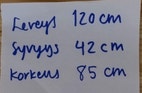 Leveys 120 cm
Syvyys 42 cm
Korkeus 85 cm